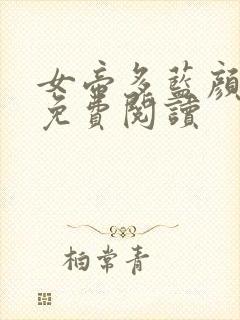 女帝多藍顔
免費閱讀
柏常青